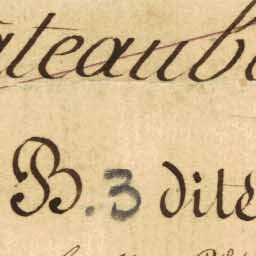 ateaub
B. 3 dite